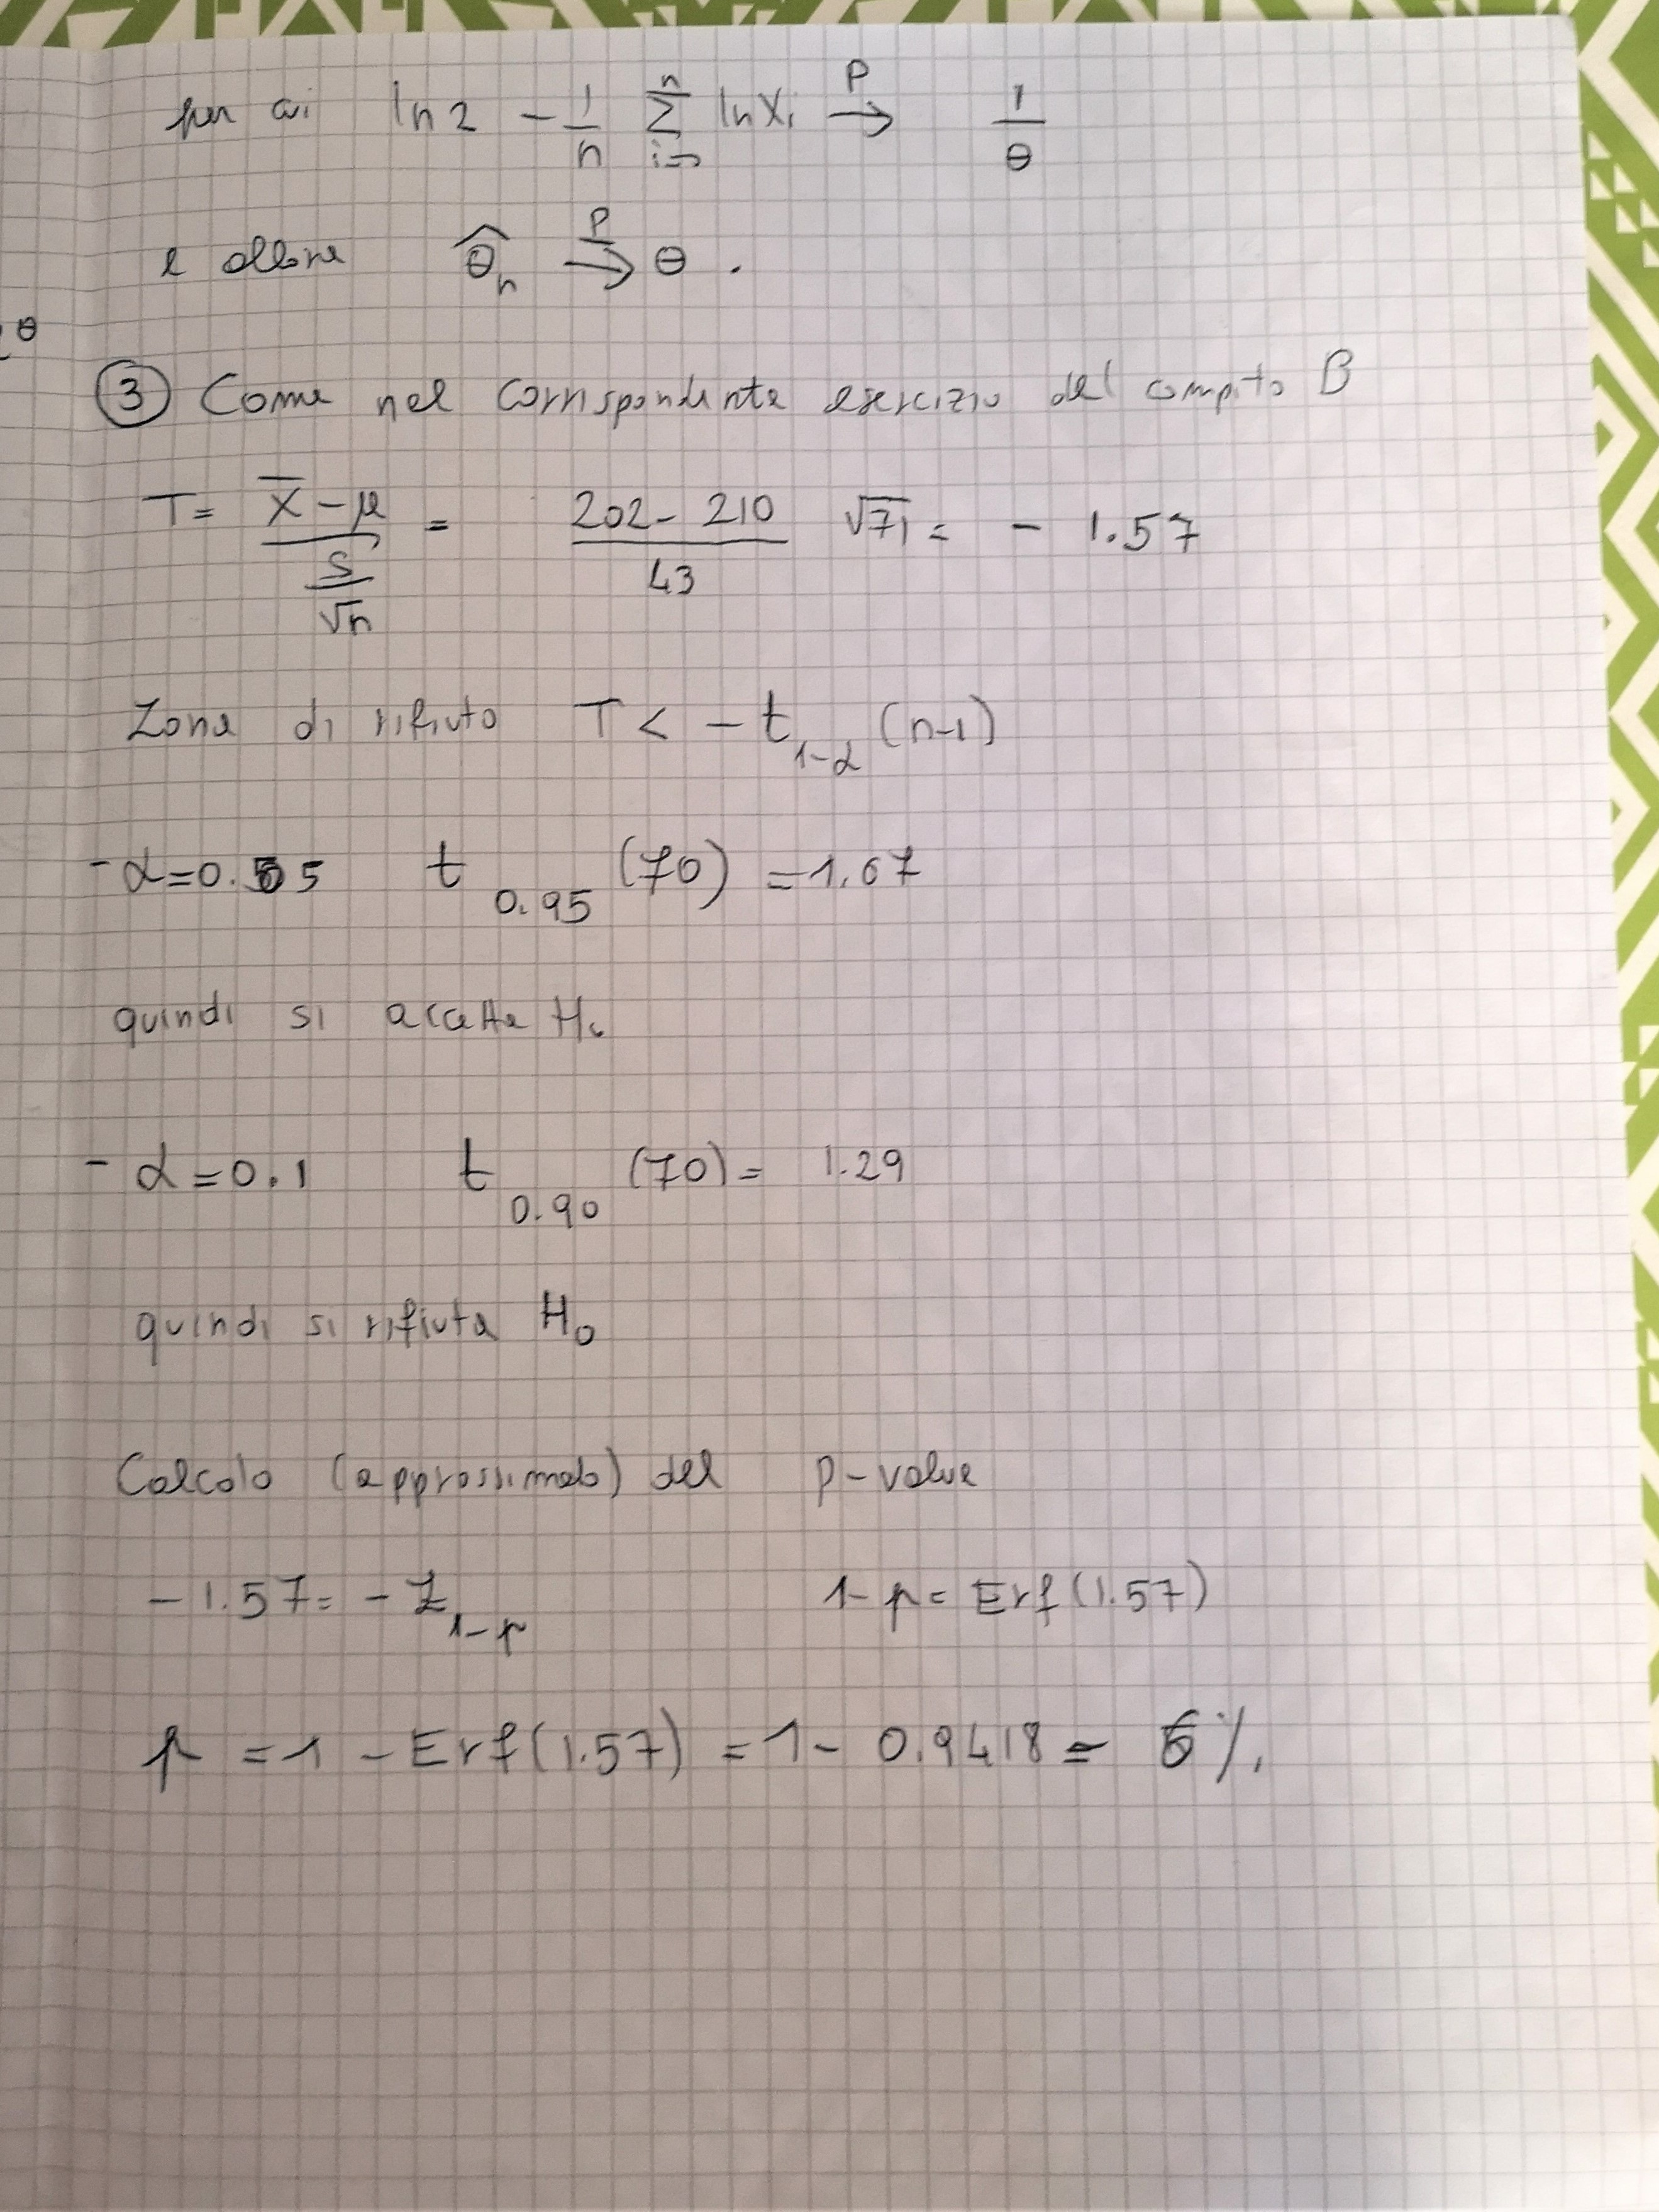 per cui ln 2 - 1/n Σ_{i=1}^{n} ln X_i →^P 1/θ
e allora θ̂_n →^P θ .
θ
③ Come nel corrispondente esercizio del compito B
T = (X̄ - μ)/(S/√n) = (202 - 210)/43 √71 = - 1.57
Zona di rifiuto T < - t_{1-α} (n-1)
- α = 0.05 t_{0.95} (70) = 1.67
quindi si accetta H_0
- α = 0.1 t_{0.90} (70) = 1.29
quindi si rifiuta H_0
Calcolo (approssimato) del p-value
- 1.57 = - Z_{1-p} 1 - p = Erf (1.57)
p = 1 - Erf (1.57) = 1 - 0.9418 = 6%.